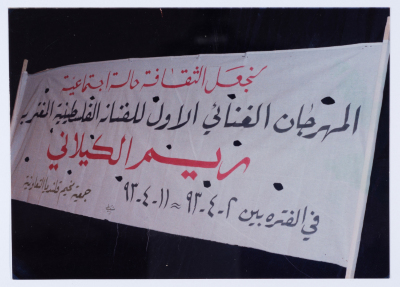 لنجعل الثقافة حالة اجتماعية
المهرجان الغنائي الاول للفنانة الفلسطينية المغتربة
ريم الكيلاني
في الفترة بين ٢-٤-٩٣ ≈ ١١-٤-٩٣
جمعية مخيم قلنديا التعاونية